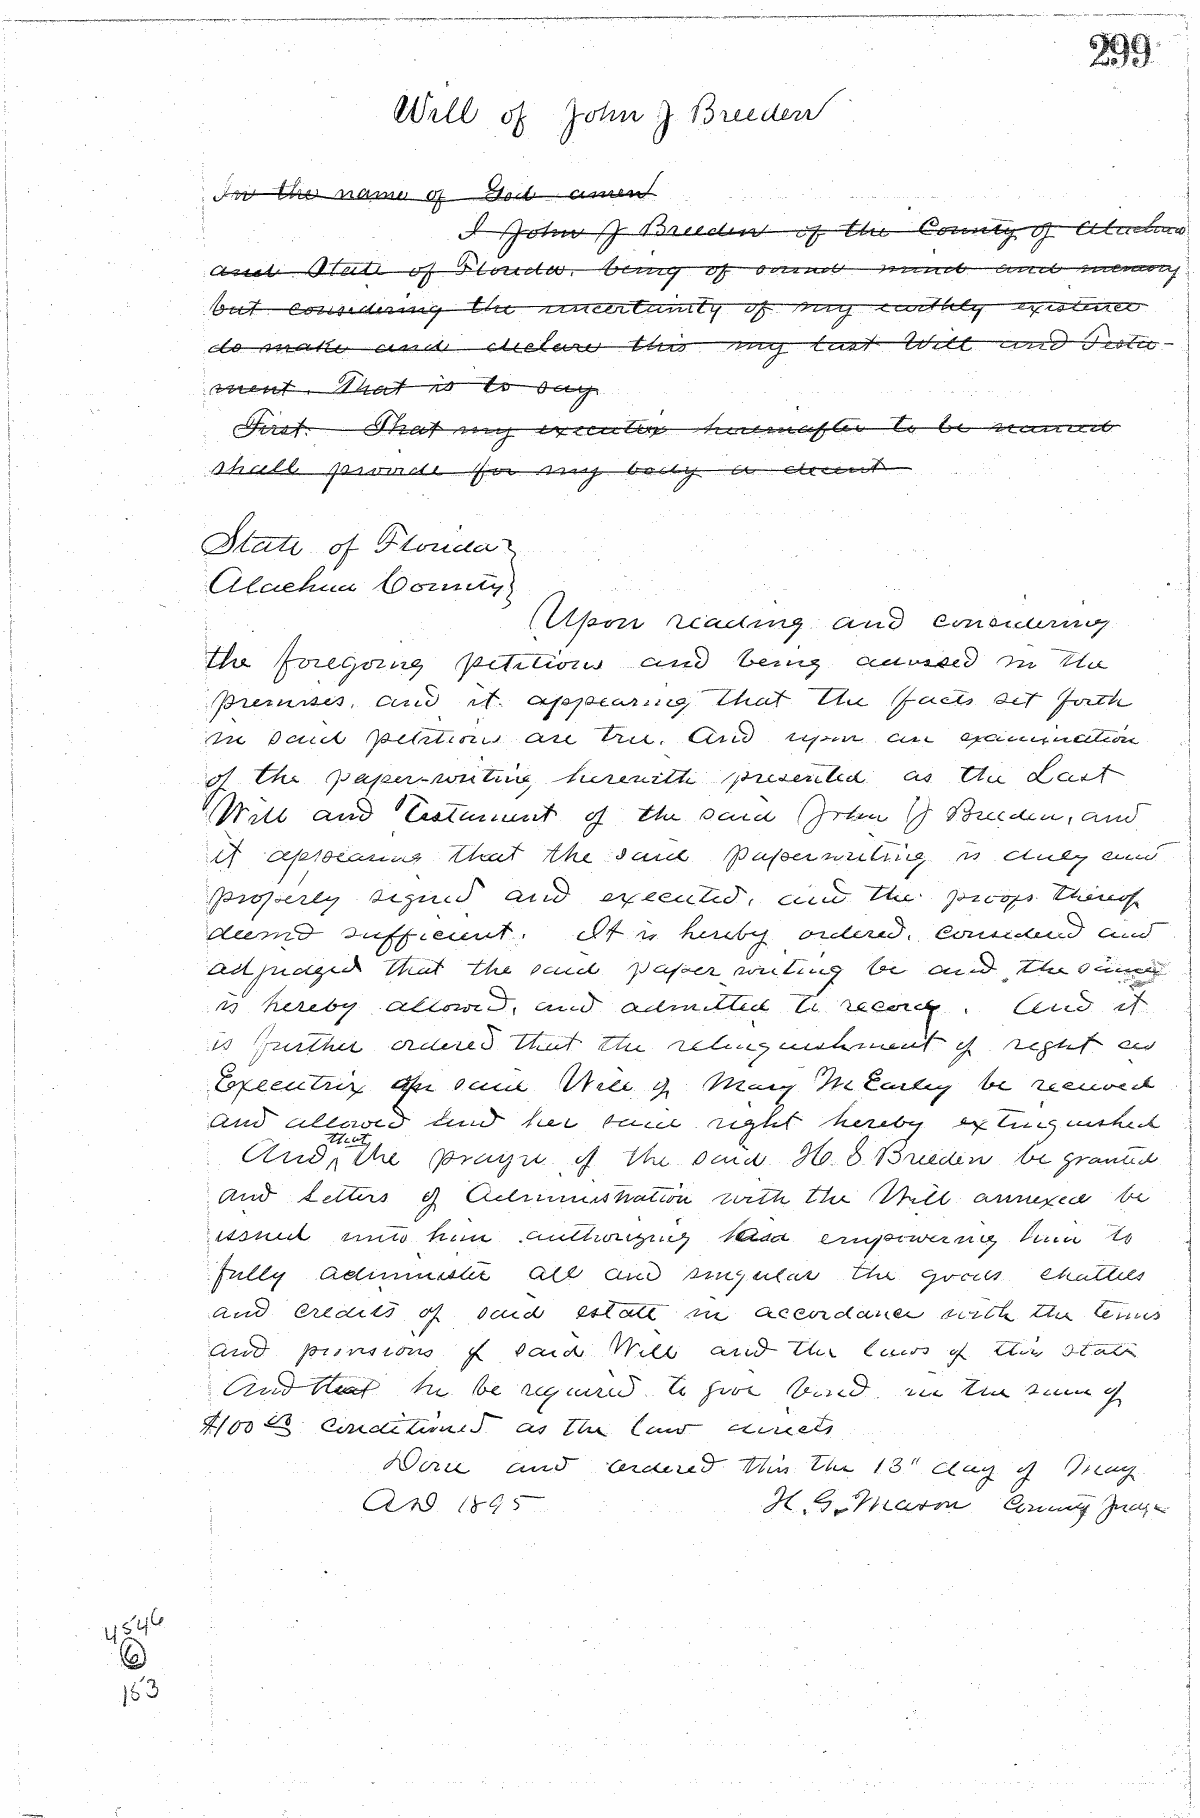 299
Will of John J Breeden
In the name of God amen
I John J Breeden of the County of Alachua
and State of Florida. being of sound mind and memory
but considering the uncertainty of my earthly existence
do make and declare this my last Will and Testa-
ment. That is to say
First. That my executor hereinafter to be named
shall provide for my body a decent
State of Florida
Alachua County
Upon reading and considering
the foregoing petition and being advised in the
premises, and it appearing that the facts set forth
in said petition are true. And upon an examination
of the paper-writing herewith presented as the Last
Will and Testament of the said John J Breeden, and
it appearing that the said paperwriting is duly and
properly signed and executed, and the proofs thereof
deem'd sufficient. It is hereby ordered, considered and
adjudged that the said paper writing be and the same
is hereby allowed, and admitted to record. And it
is further ordered that the relinquishment of right as
Executrix of said Will of Mary McEarley be received
and allowed and her said right hereby extinguished
And that the prayer of the said H. S Breeden be granted
and Letters of Administration with the Will annexed be
issued unto him authorizing and empowering him to
fully administer all and singular the goods chattels
and credits of said estate in accordance with the terms
and provisions of said Will and the laws of this State
And that he be required to give bond in the sum of
$100 00 conditioned as the law directs
Done and ordered this the 13" day of May
AD 1895 H. G. Mason County Judge
4546
6
153